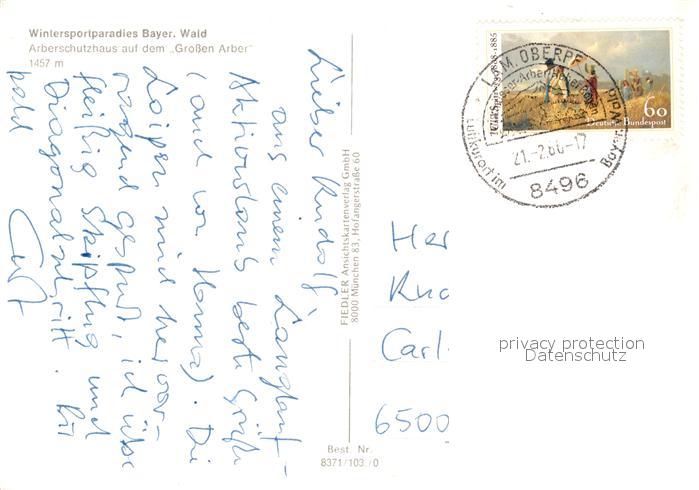 Wintersportparadies Bayer. Wald
Arberschutzhaus auf dem „Großen Arber"
1457 m
Lieber Rudolf,
aus einem Langlauf-
Aktivurlaub beste Grüße
(auch von Hanna). Die
Loipen sind hervor-
ragend gespurt, ich übe
fleißig Skipflug und
Diagonalschritt. Bis
bald
FIEDLER Ansichtskartenverlag GmbH
8000 München 83, Hofangerstraße 60
Best. Nr.
8371/103/0
1808-1885
60
Deutsche Bundespost
LAM, OBERPF
21.-2.86-17
8496
Luftkurort im
Bayer.
Her
Rud
Carl-
6500
privacy protection
Datenschutz